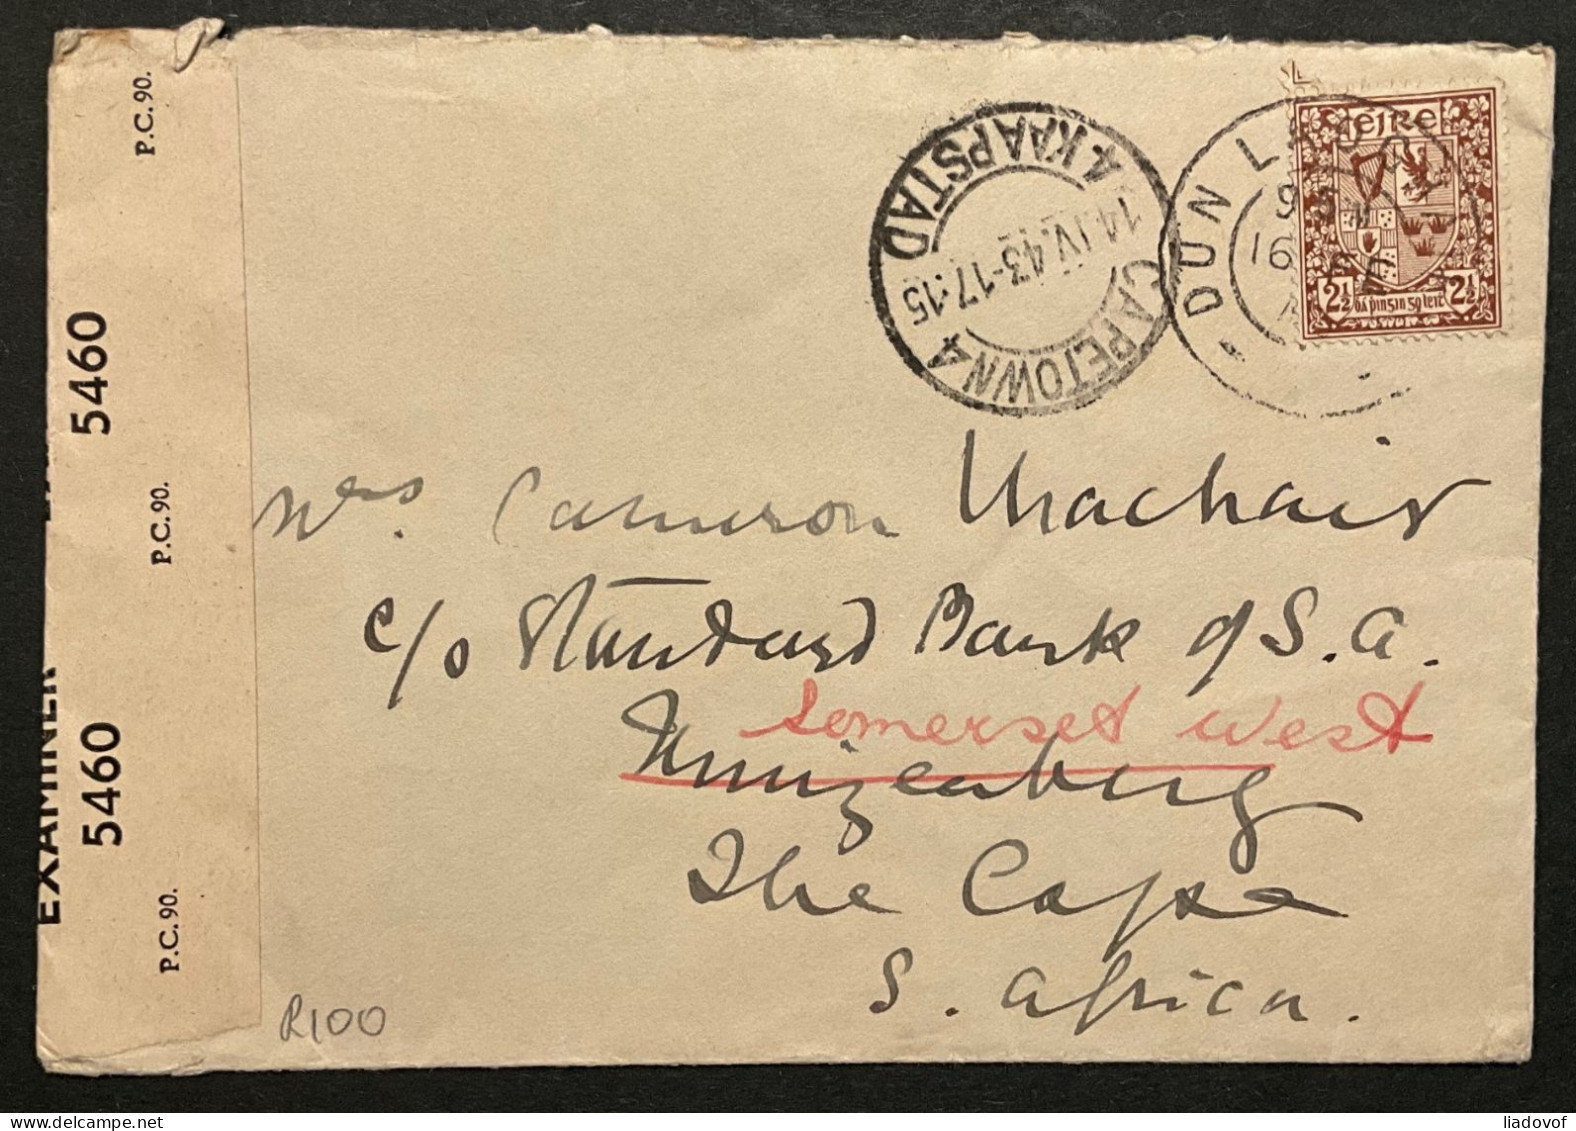 P.C. 90.
5460
P.C. 90.
EXAMINER
5460
P.C. 90.
4 KAAPSTAD
14.IV.43-17.15
CAPETOWN 4
DUN
16
éire
2½ dá pinsin go leit 2½
Mrs. Cameron
c/o Standard Bank of S.A.
Somerset West
Muizenberg
The Cape
S. Africa.
R100
liadovof